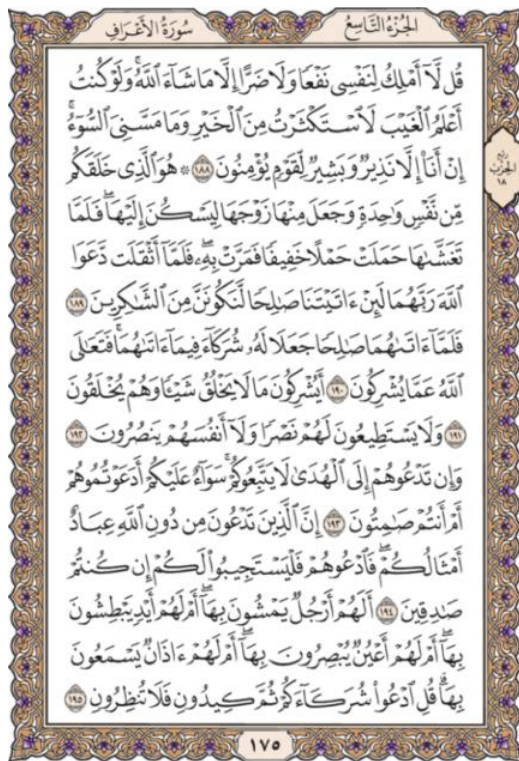 الجُزْءُ التَّاسِعُ
سُورَةُ الأَعْرَافِ
قُل لَّآ أَمْلِكُ لِنَفْسِي نَفْعًا وَلَا ضَرًّا إِلَّا مَا شَآءَ ٱللَّهُۚ وَلَوْ كُنتُ
أَعْلَمُ ٱلْغَيْبَ لَٱسْتَكْثَرْتُ مِنَ ٱلْخَيْرِ وَمَا مَسَّنِيَ ٱلسُّوٓءُۚ
إِنْ أَنَا۠ إِلَّا نَذِيرٌ وَبَشِيرٌ لِّقَوْمٍ يُؤْمِنُونَ ١٨٨ ۞ هُوَ ٱلَّذِي خَلَقَكُم
مِّن نَّفْسٍ وَٰحِدَةٍ وَجَعَلَ مِنْهَا زَوْجَهَا لِيَسْكُنَ إِلَيْهَاۖ فَلَمَّا
تَغَشَّىٰهَا حَمَلَتْ حَمْلًا خَفِيفًا فَمَرَّتْ بِهِۦۖ فَلَمَّآ أَثْقَلَت دَّعَوَا
ٱللَّهَ رَبَّهُمَا لَئِنْ ءَاتَيْتَنَا صَٰلِحًا لَّنَكُونَنَّ مِنَ ٱلشَّٰكِرِينَ ١٨٩
فَلَمَّآ ءَاتَىٰهُمَا صَٰلِحًا جَعَلَا لَهُۥ شُرَكَآءَ فِيمَآ ءَاتَىٰهُمَاۚ فَتَعَٰلَى
ٱللَّهُ عَمَّا يُشْرِكُونَ ١٩٠ أَيُشْرِكُونَ مَا لَا يَخْلُقُ شَيْـًٔا وَهُمْ يُخْلَقُونَ
١٩١ وَلَا يَسْتَطِيعُونَ لَهُمْ نَصْرًا وَلَآ أَنفُسَهُمْ يَنصُرُونَ ١٩٢
وَإِن تَدْعُوهُمْ إِلَى ٱلْهُدَىٰ لَا يَتَّبِعُوكُمْۚ سَوَآءٌ عَلَيْكُمْ أَدَعَوْتُمُوهُمْ
أَمْ أَنتُمْ صَٰمِتُونَ ١٩٣ إِنَّ ٱلَّذِينَ تَدْعُونَ مِن دُونِ ٱللَّهِ عِبَادٌ
أَمْثَالُكُمْۖ فَٱدْعُوهُمْ فَلْيَسْتَجِيبُوا۟ لَكُمْ إِن كُنتُمْ
صَٰدِقِينَ ١٩٤ أَلَهُمْ أَرْجُلٌ يَمْشُونَ بِهَآۖ أَمْ لَهُمْ أَيْدٍ يَبْطِشُونَ
بِهَآۖ أَمْ لَهُمْ أَعْيُنٌ يُبْصِرُونَ بِهَآۖ أَمْ لَهُمْ ءَاذَانٌ يَسْمَعُونَ
بِهَاۗ قُلِ ٱدْعُوا۟ شُرَكَآءَكُمْ ثُمَّ كِيدُونِ فَلَا تُنظِرُونِ ١٩٥
رُبْع
الحِزْب
١٨
١٧٥